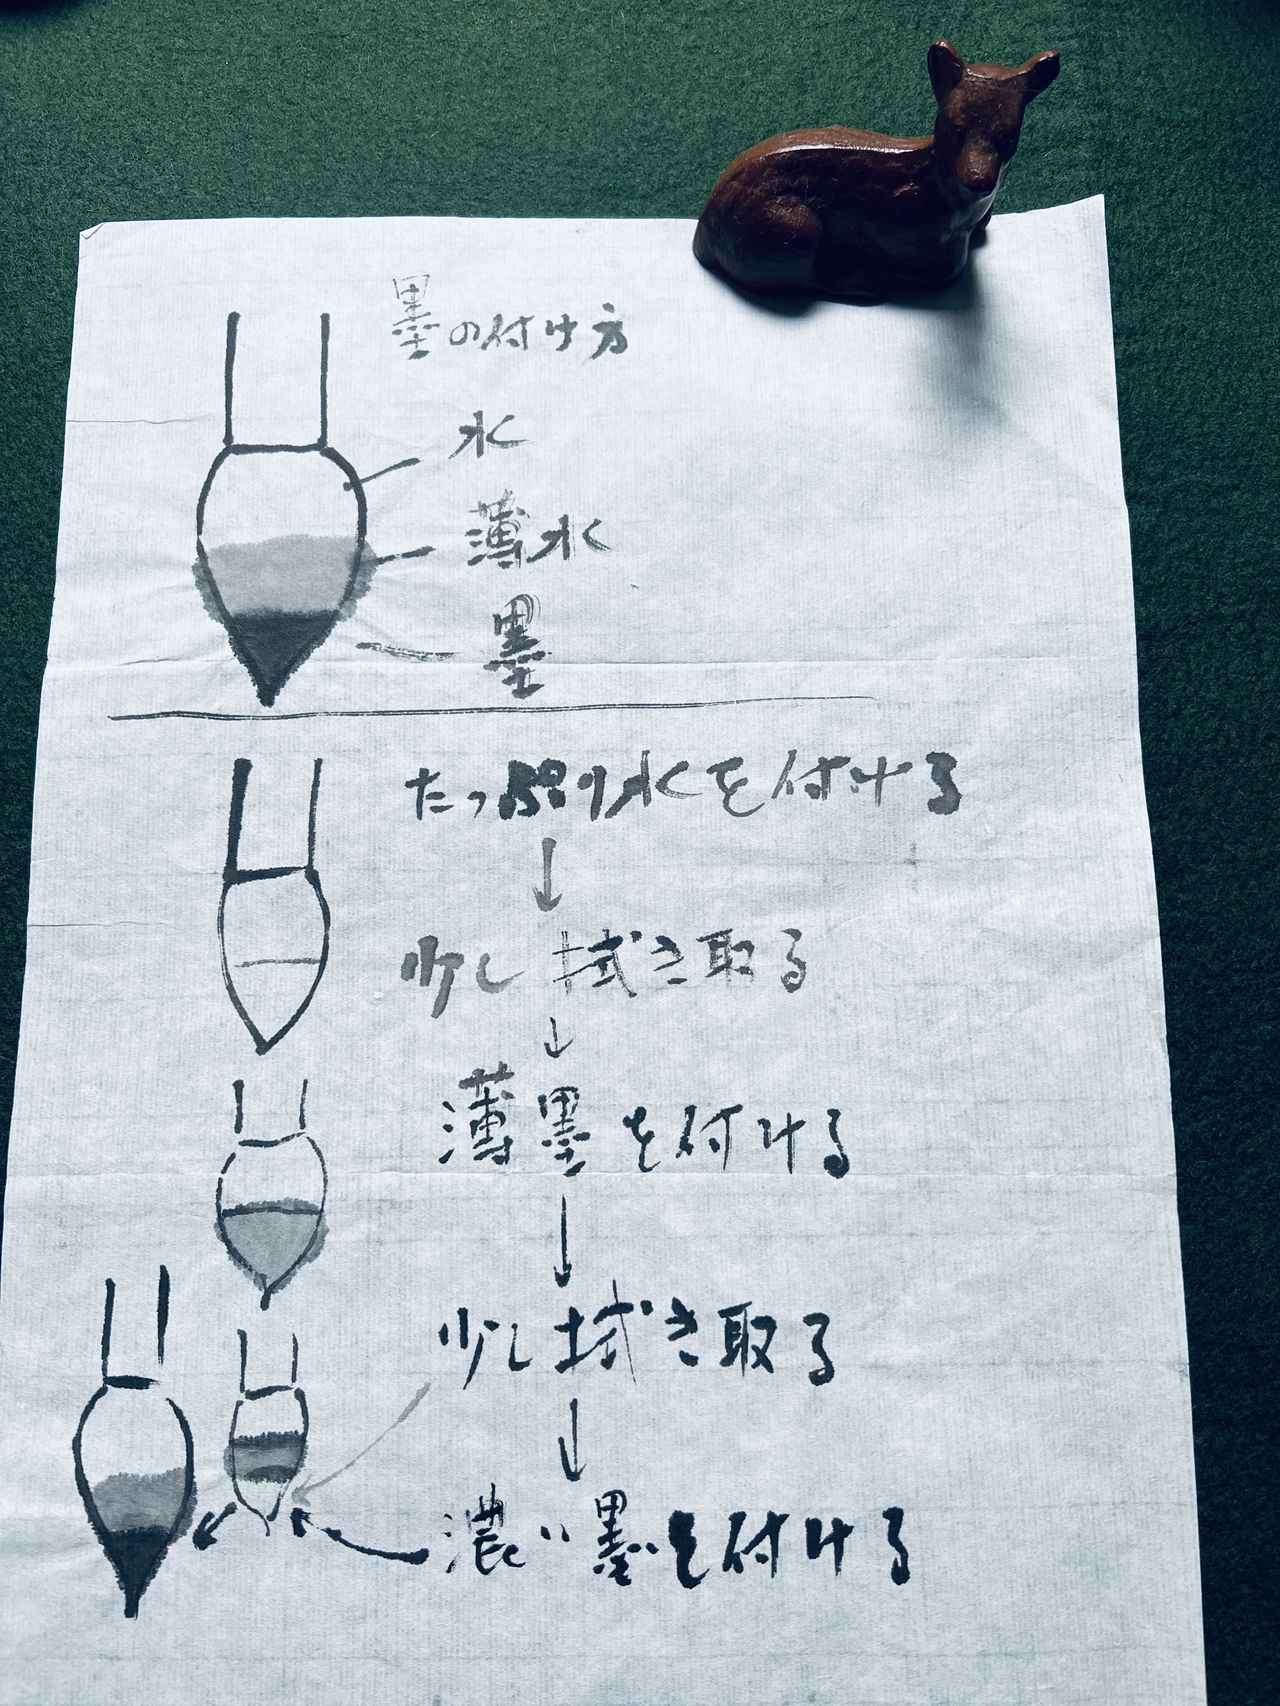 墨の付け方
水
薄水
墨
たっぷり水を付ける
↓
少し拭き取る
↓
薄墨を付ける
↓
少し拭き取る
↓
濃い墨を付ける